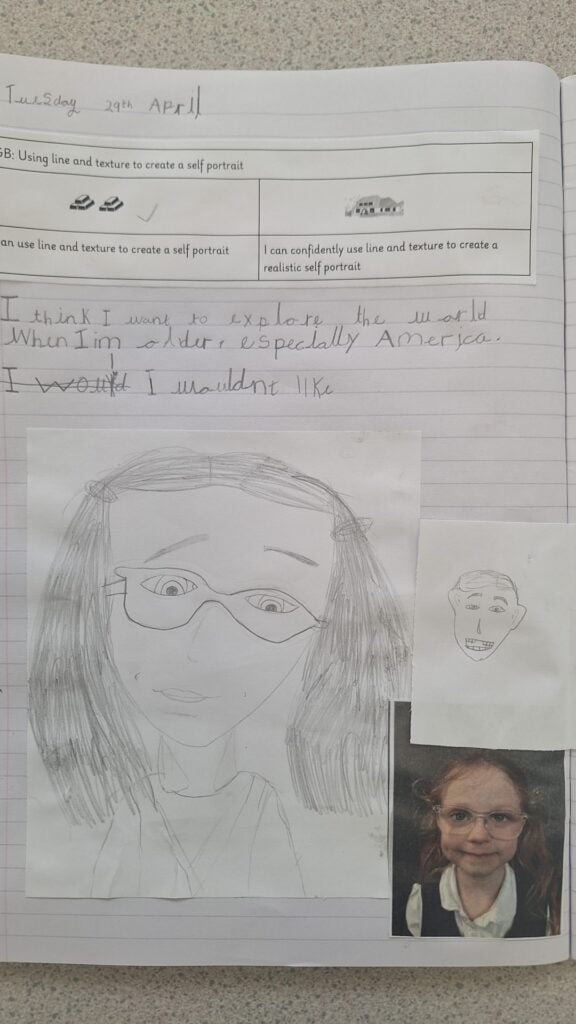 Tuesday 29th April
GB: Using line and texture to create a self portrait
an use line and texture to create a self portrait
I can confidently use line and texture to create a
realistic self portrait
I think I want to explore the world
When I im older, especially America.
I would I wouldnt like